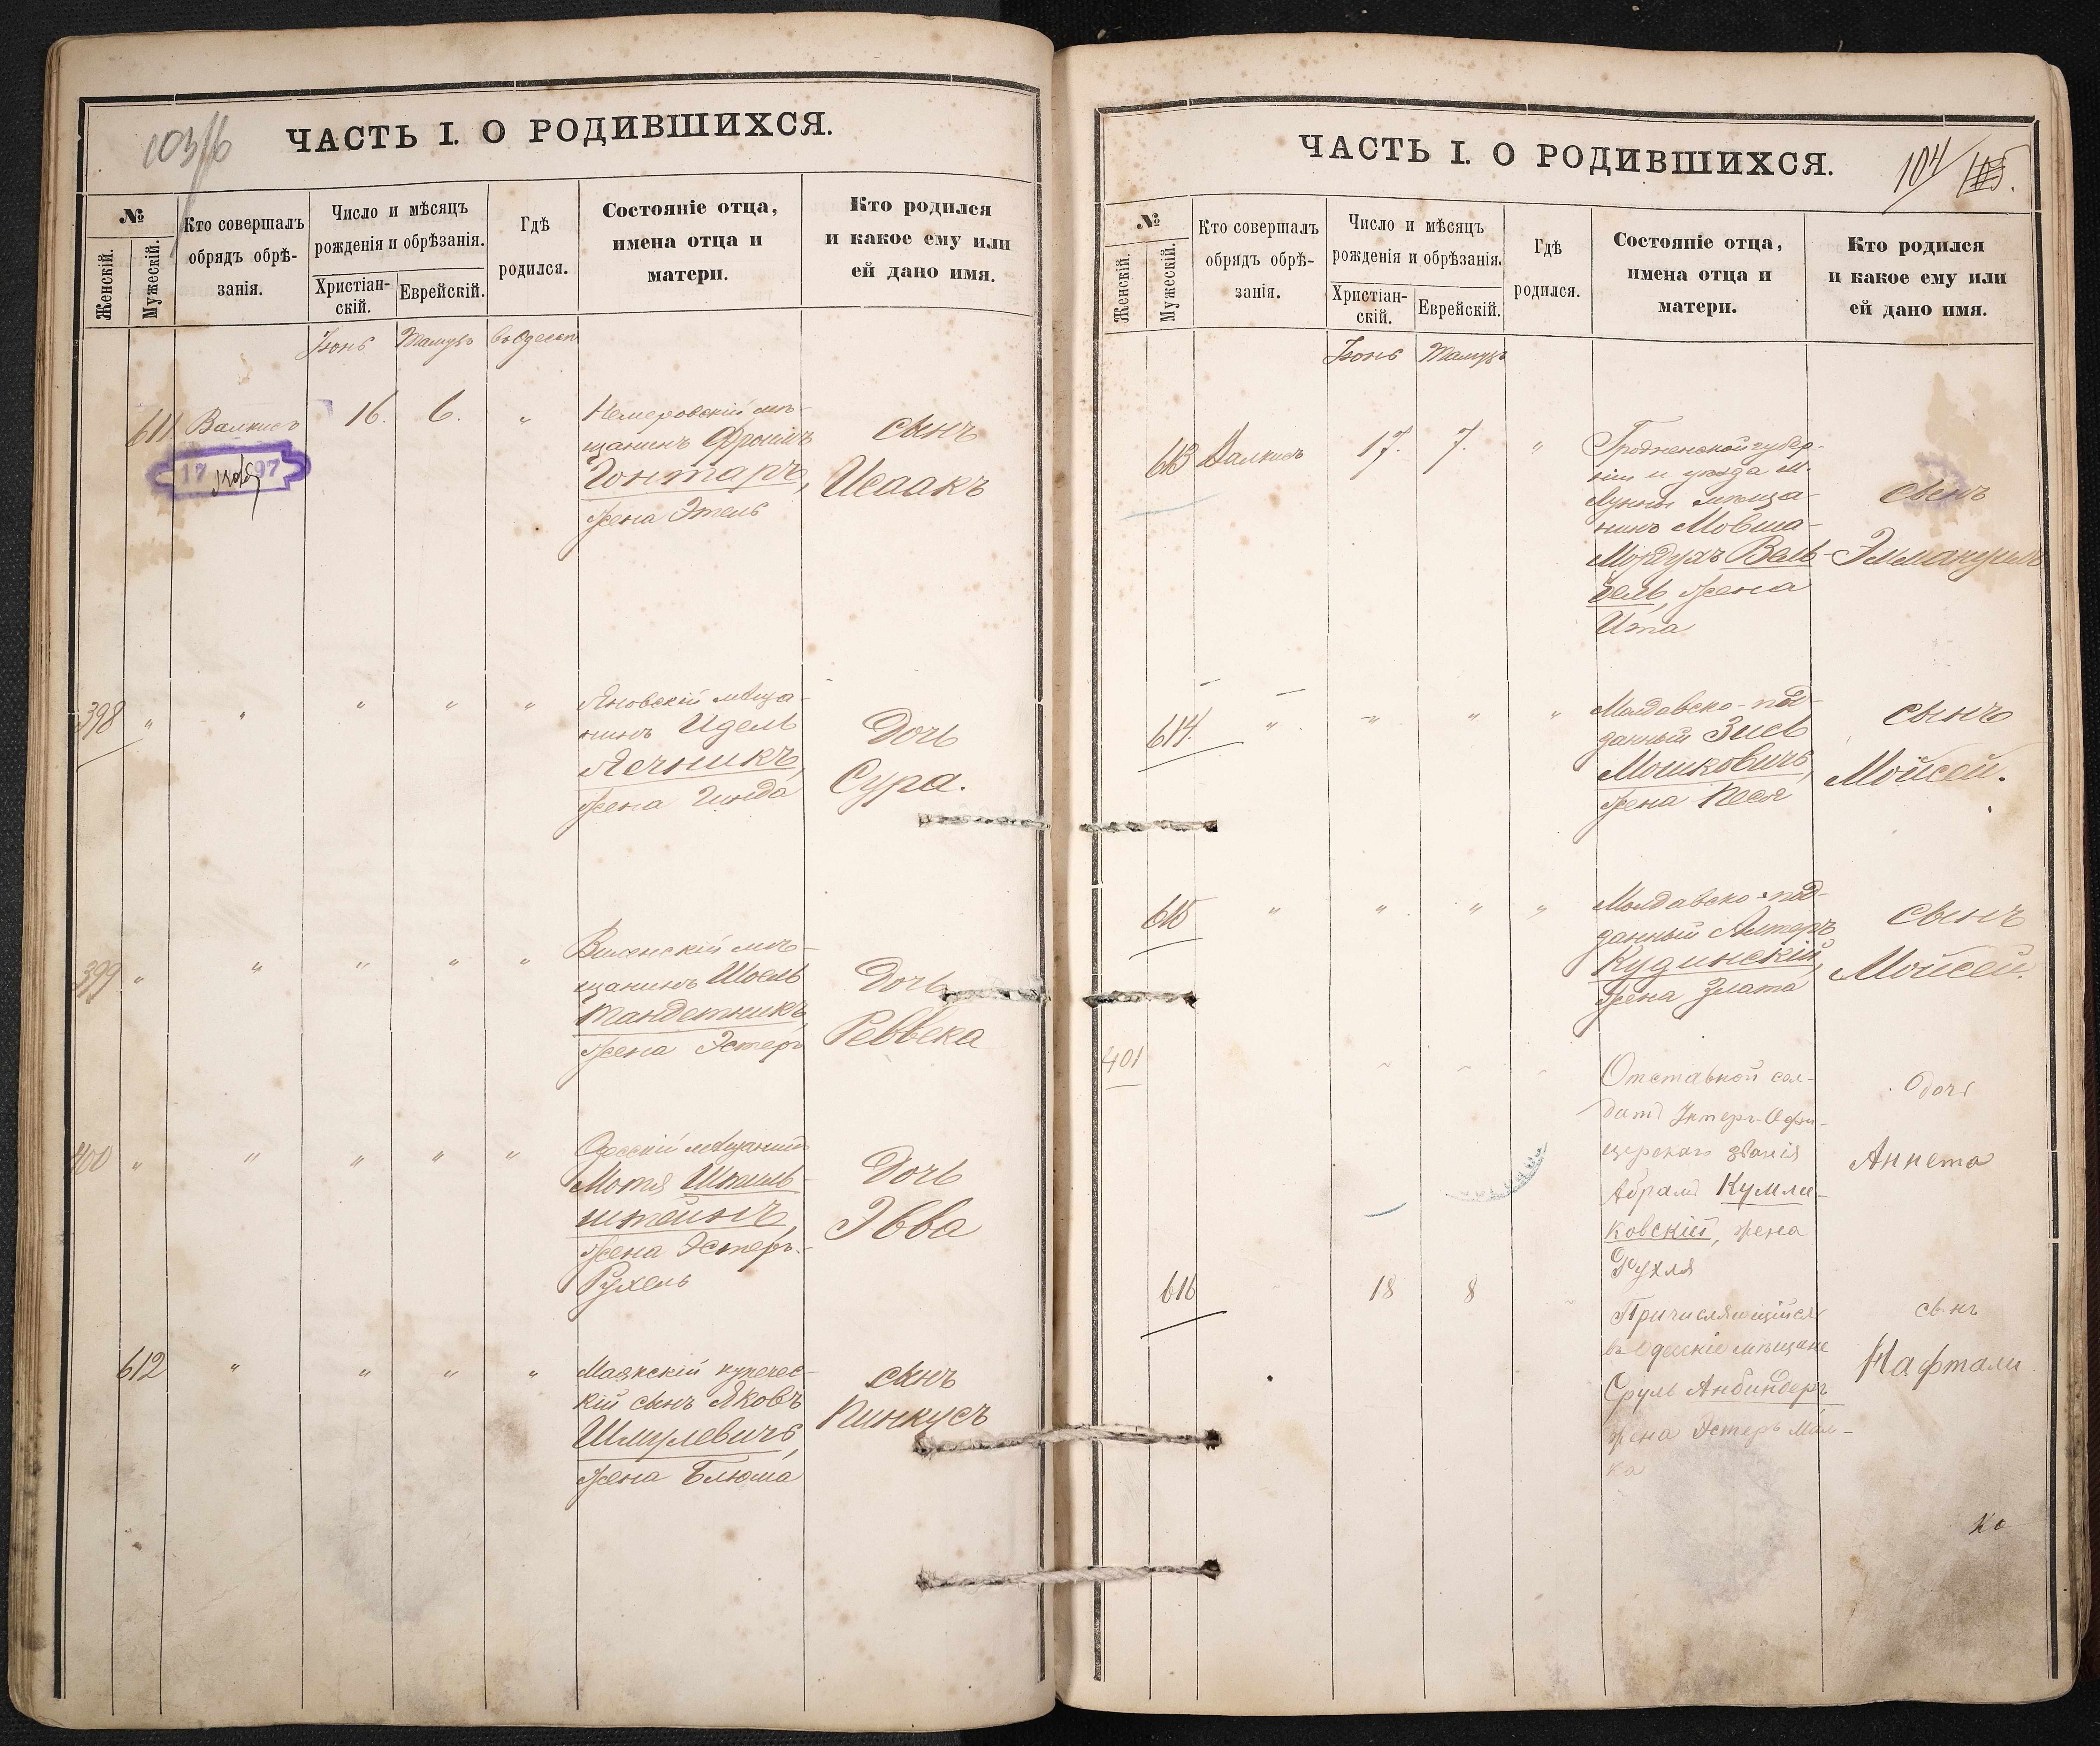 103/6
ЧАСТЬ I. О РОДИВШИХСЯ.
№
Женскій.
Мужескій.
Кто совершалъ
обрядъ обрѣ-
занія.
Число и мѣсяцъ
рожденія и обрѣзанія.
Христіан-
скій.
Еврейскій.
Гдѣ
родился.
Состояніе отца,
имена отца и
матери.
Кто родился
и какое ему или
ей дано имя.
Іюнь Тамузъ въ Одессѣ
611 Валкисъ 16. 6. „
Немеровскій мѣ-
щанинъ Фроимъ
Гонтаръ,
жена Этель
сынъ
Исаакъ
17 97
398 „ „ „ „ „
Яновскій мѣща-
нинъ Идель
Ячникъ,
жена Гинда
Дочь
Сура.
399 „ „ „ „ „
Виленскій мѣ-
щанинъ Шоель
Тандетникъ,
жена Эстеръ
Дочь
Реввека
400 „ „ „ „ „
Одесскій мѣщанинъ
Мотя
штейнъ,
жена Эстеръ-
Рухель
Дочь
Эвва
612 „ „ „ „
Маякскій купечес-
кій сынъ Яковъ
Шмулевичъ,
жена Блюма
сынъ
Пинкусъ
ЧАСТЬ I. О РОДИВШИХСЯ.
104/105.
№
Женскій.
Мужескій.
Кто совершалъ
обрядъ обрѣ-
занія.
Число и мѣсяцъ
рожденія и обрѣзанія.
Христіан-
скій.
Еврейскій.
Гдѣ
родился.
Состояніе отца,
имена отца и
матери.
Кто родился
и какое ему или
ей дано имя.
Іюнь Тамузъ
613 Валкисъ 17. 7. „
Гродненской губер-
ніи и уѣзда м.
Лунны мѣща-
нинъ Мовша-
Мордухъ Вель-
бель, жена
Ита
сынъ
Эммануилъ
614. „ „ „ „
Молдавско-под-
данный Зись
Мошковичъ,
жена Песя
сынъ
Мойсей.
615 „ „ „ „
Молдавско-под-
данный Алтеръ
Кудинскій,
жена Злата
сынъ
Мойсей.
401
Отставной сол-
датъ Унтеръ-Офи-
церскаго званія
Абрамъ Кумли-
ковскій, жена
Рухля
дочь
Аннета
616 18 8
Причисляющійся
въ Одесскіе мѣщане
Сруль Анбиндеръ
жена Эстеръ Мал-
ка
сынъ
Нафтали